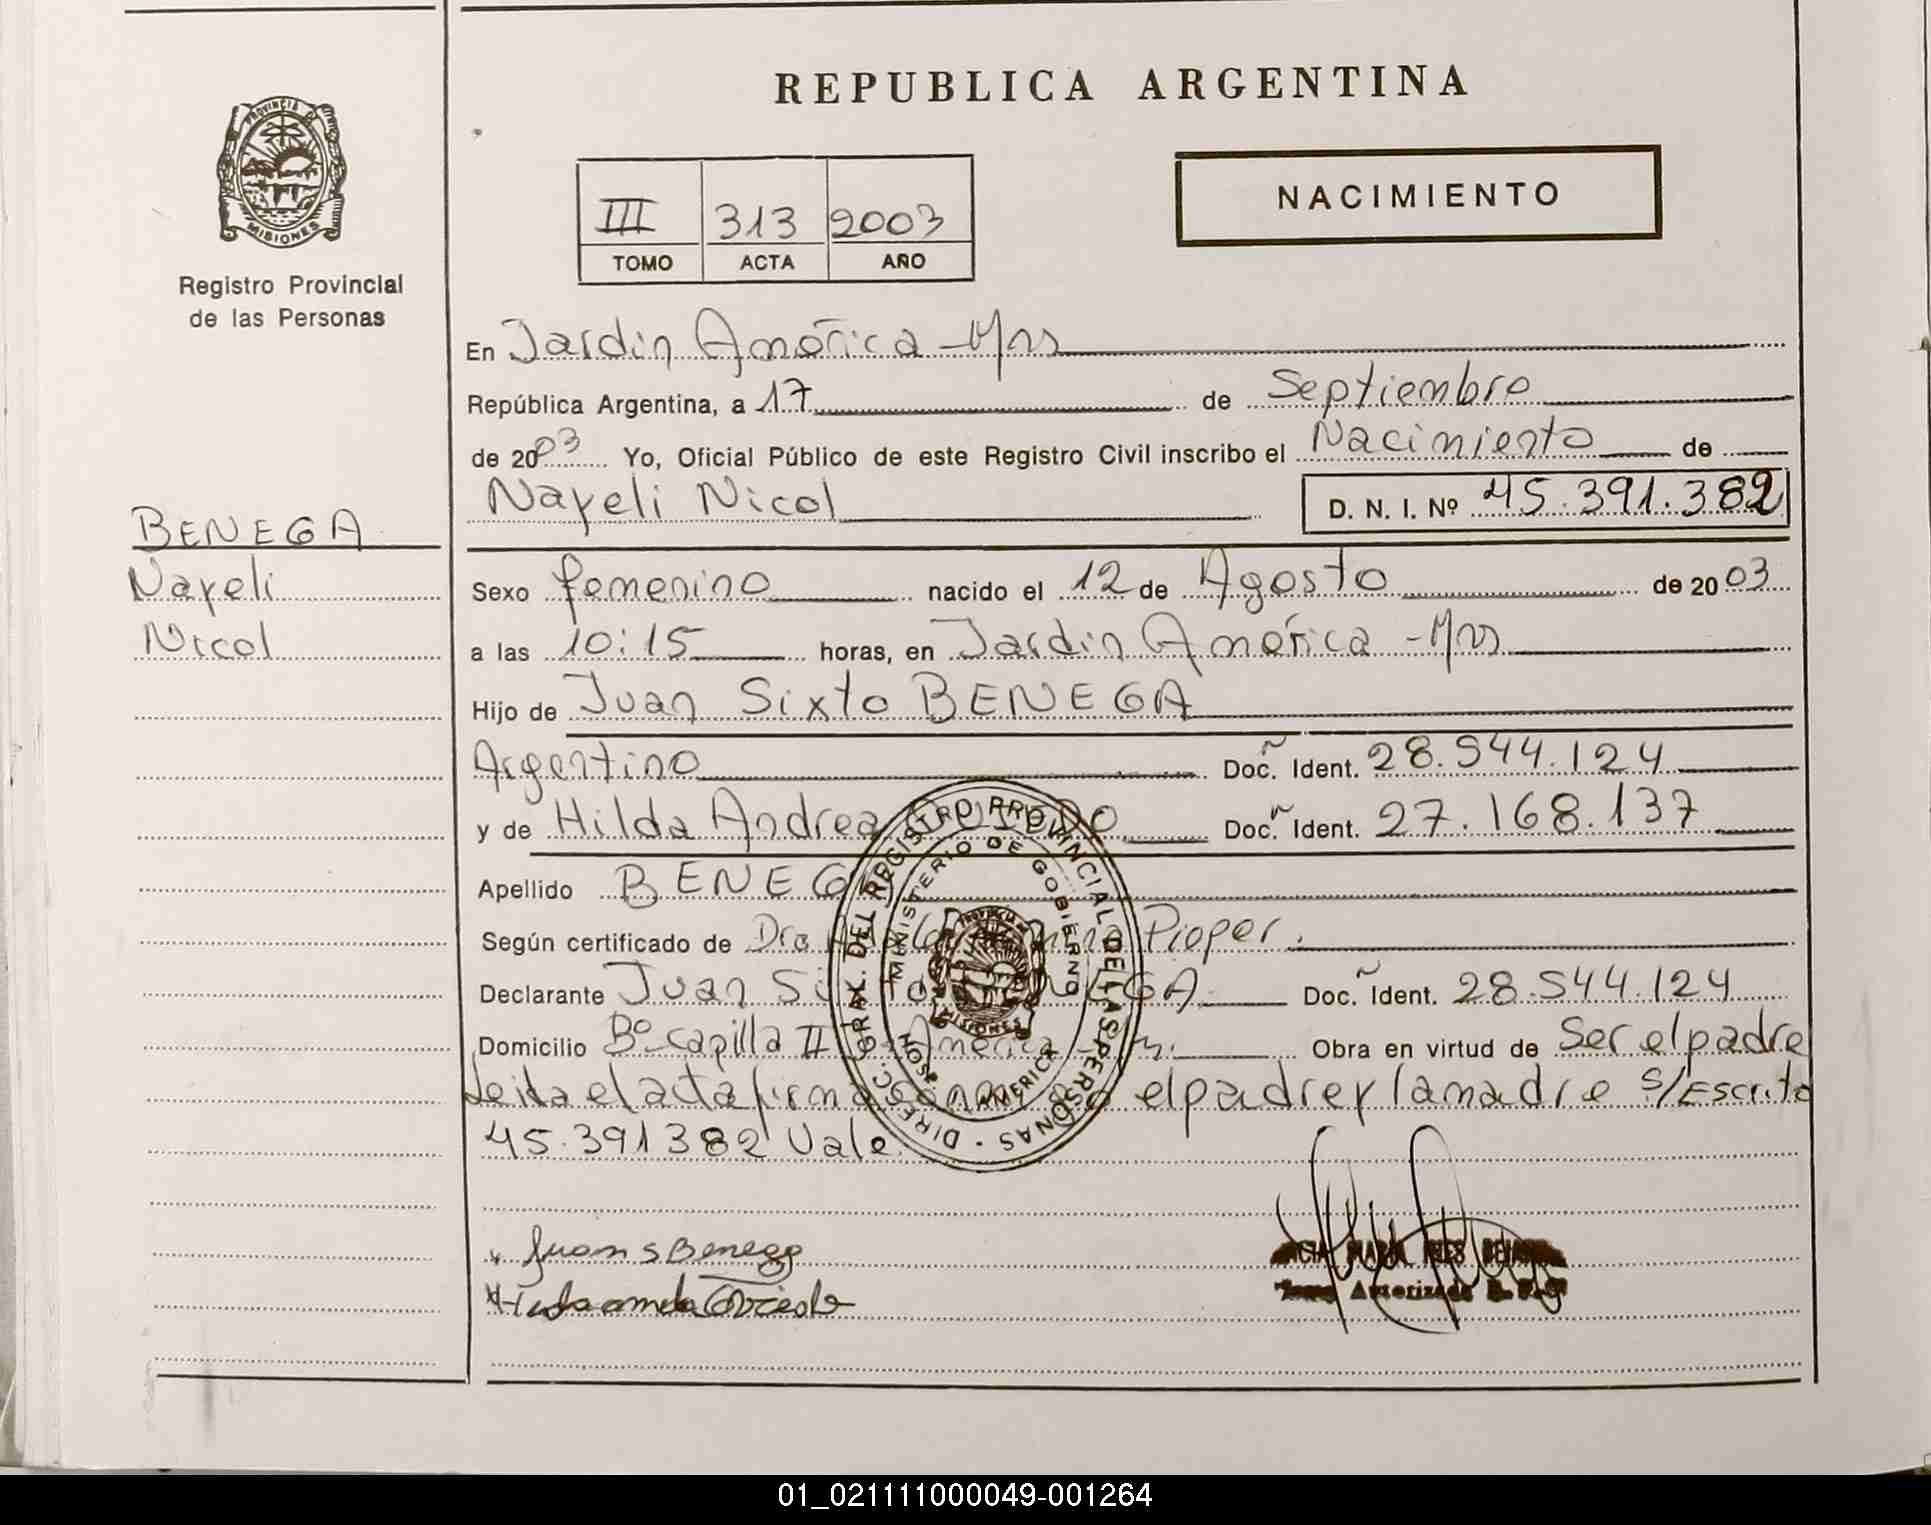 REPUBLICA ARGENTINA
PROVINCIA DE
MISIONES
Registro Provincial
de las Personas
NACIMIENTO
III 313 2003
TOMO ACTA AÑO
En Jardin América - Mns
República Argentina, a 17 de Septiembre
de 2003 Yo, Oficial Público de este Registro Civil inscribo el Nacimiento de
Nayeli Nicol D. N. I. Nº 45.391.382
BENEGA
Nayeli
Nicol
Sexo femenino nacido el 12 de Agosto de 2003
a las 10:15 horas, en Jardin América - Mns
Hijo de Juan Sixto BENEGA
Argentino Doc. Ident. 28.544.124
y de Hilda Andrea Doc. Ident. 27.168.137
Apellido BENEGA
Según certificado de Dra Pieper.
Declarante Juan Sixto BENEGA Doc. Ident. 28.544.124
Domicilio Bº Capilla II América Obra en virtud de Ser el padre
Leida el acta firman el padre y la madre s/Escrito
45.391382 Vale
DIRECC. GRAL. DEL REGISTRO PROVINCIAL DE LAS PERSONAS
MINISTERIO DE GOBIERNO
PROVINCIA
MISIONES
AMERICA
Juan S Benega
MARIA
Autorizada
01_021111000049-001264